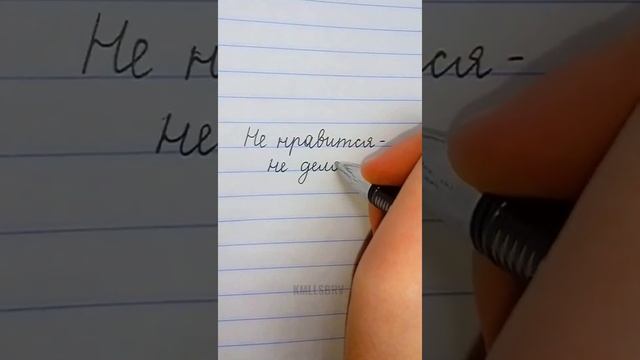 Не нравится -
не дела
KMLLSBRV